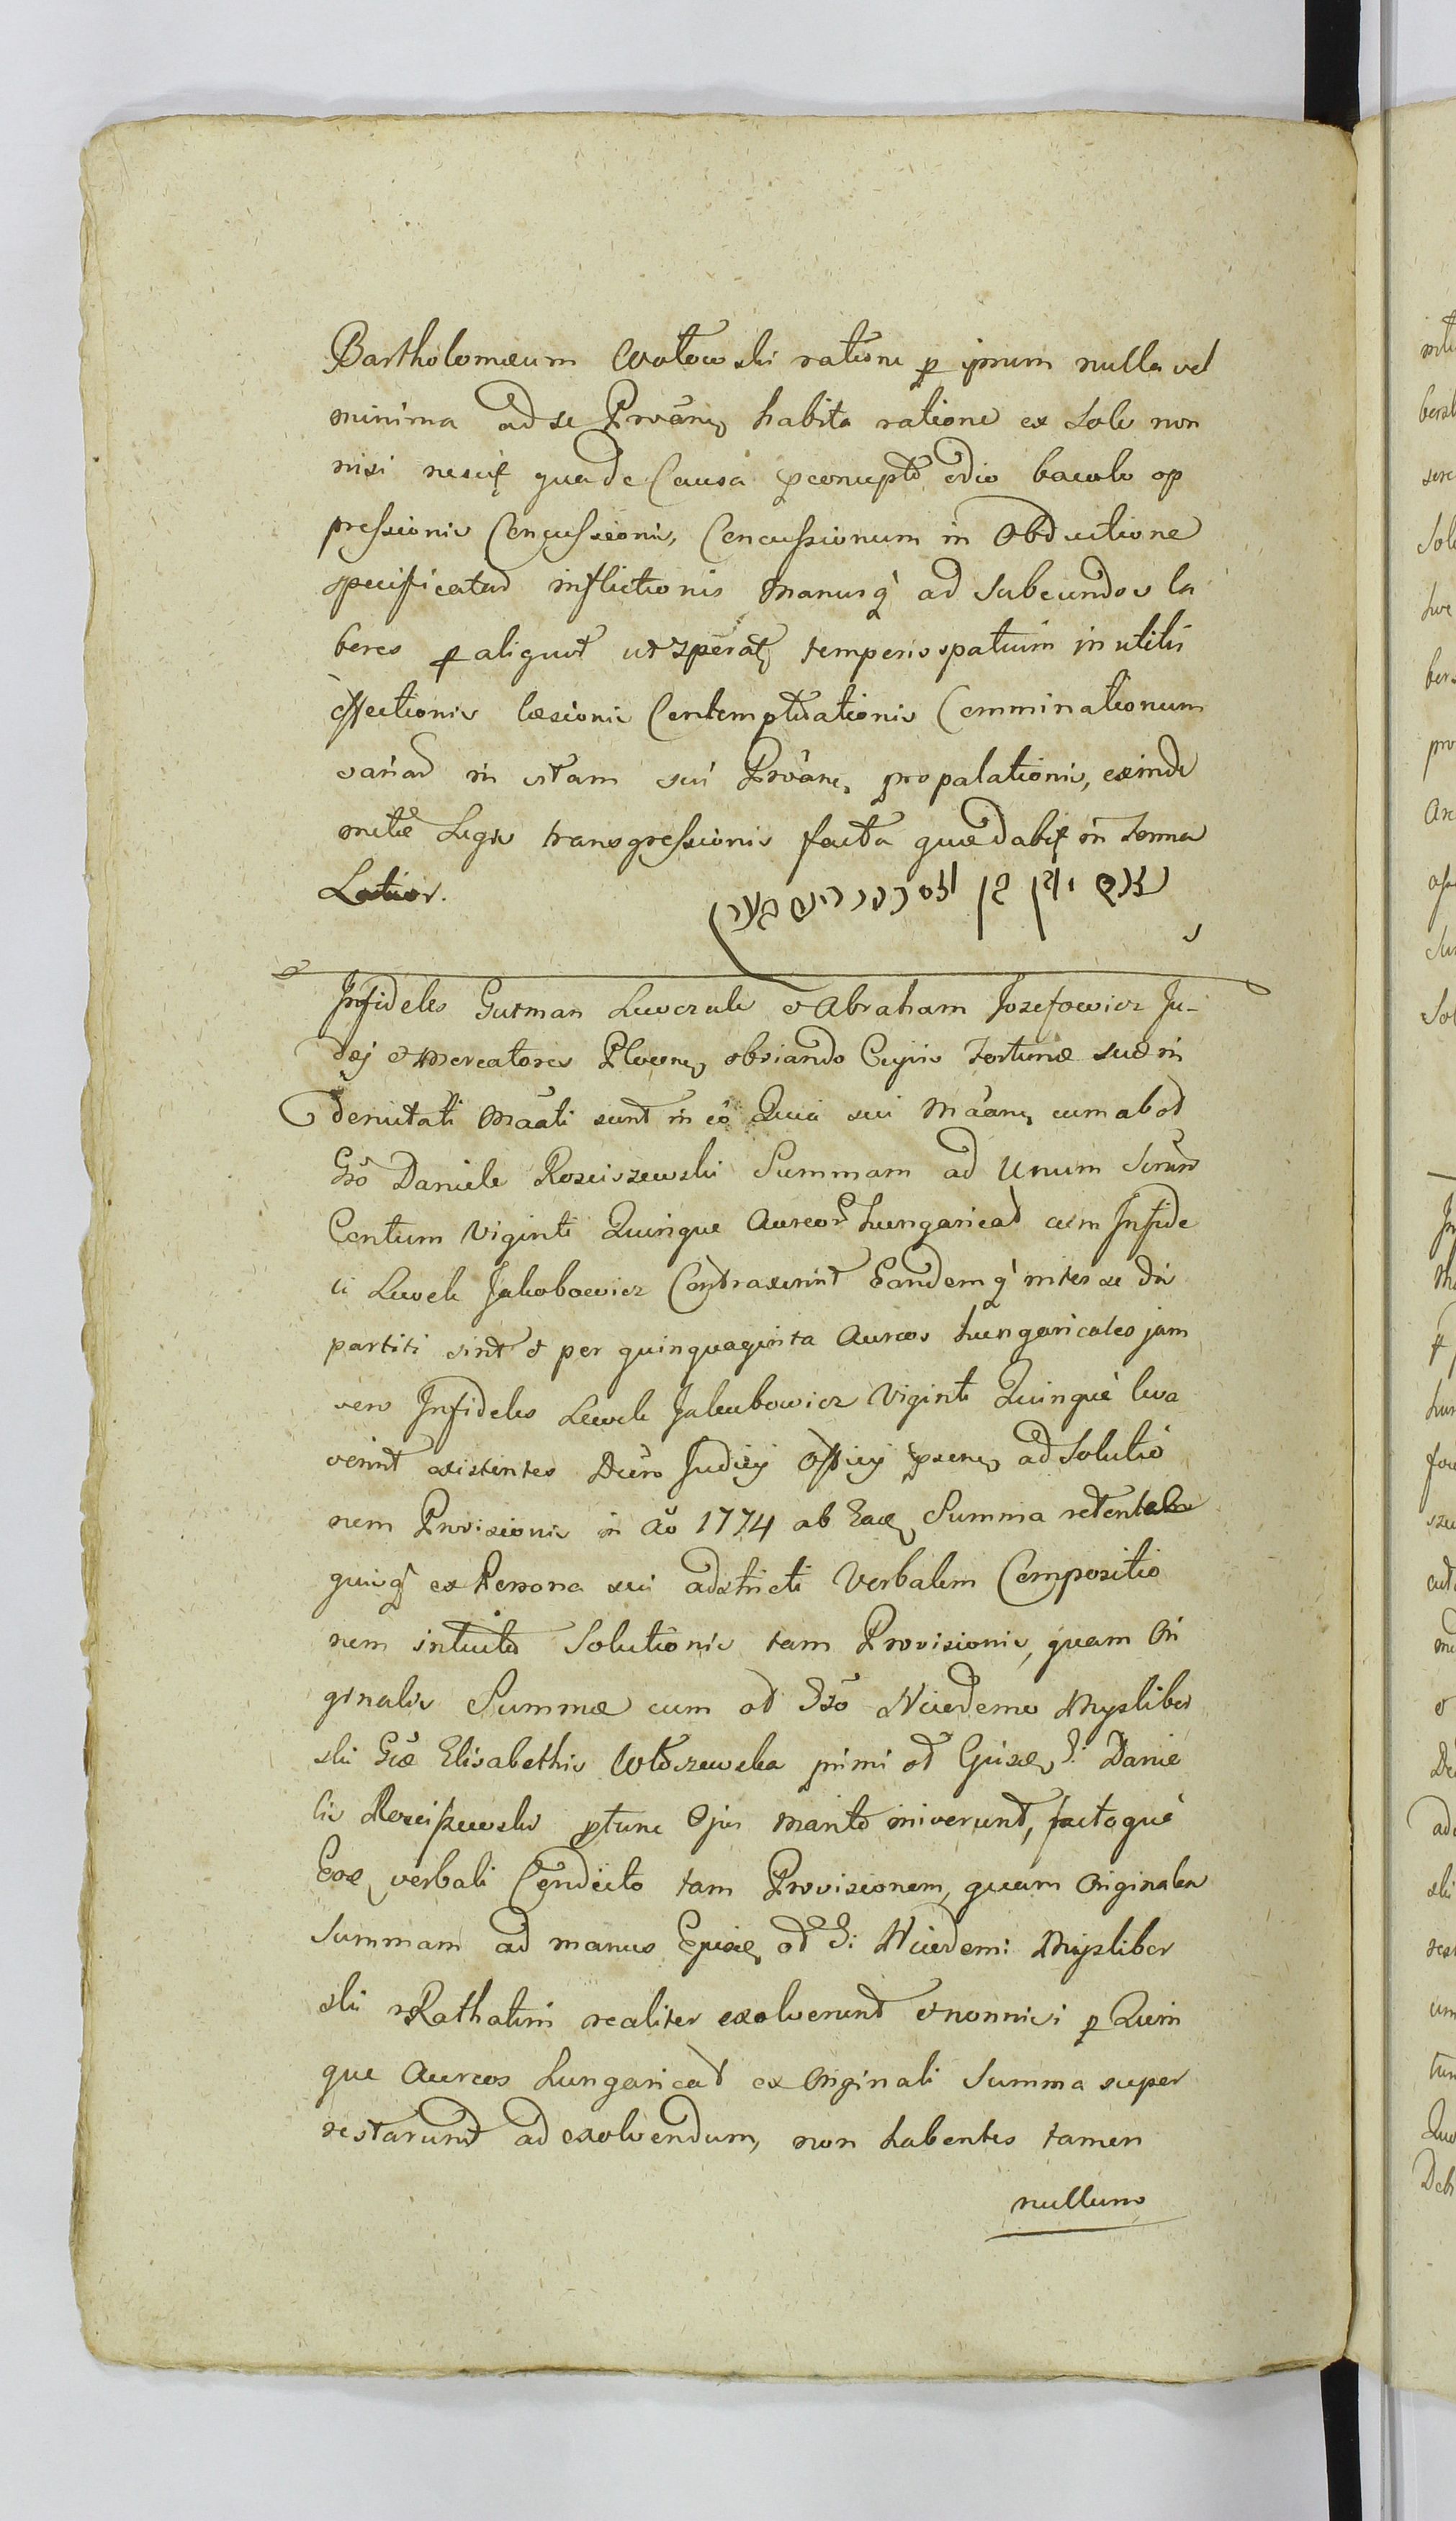 Bartholomæum Wolowski ratione p ipsum nulla vel
minima ad se Proãnẽ habita ratione ex solo non
nisi nescit̃ qua de Causa pconcepto odio baculo op
pressionis Concussionis, Concussionum in Obductione
specificatad inflictionis manusq̀ ad subeundos la
bores p aliquot ut Sperat̃ temporis spatium inutilis
effectionis læsionis Contemptuationis Comminationum
variad in vitam sui Proãne, propalationis, exinde
Legis transgressionis facta quæ dabit̃ in Forma
Latior.
Infideles Gutman Lewczak & Abraham Jozefowicz Ju-
dæj & Mercatores Plocens obviando Cujus Fortunæ suæ in
demnitati Mãati sunt in eô Quia sui Mãane, cum ab od
Gsõ Daniele Rosciszewski Summam ad Unum Simul
Centum Viginti Quinque Aureor̃ hungaricad cum Infide
li Lewek Jakobowicz Contraxerint Eandemq̀ inter se di
partiti sint & per quinquaginta Aureos hungaricales jam
vero Infideles Lewek Jakubowicz Viginti Quinque leva
verint existentes Decrõ Judicij Officij psens ad Solutio
nem Provisionis in Aõ 1774 ab Eadẽ Summa retentæ
quisq̀ ex Persona sui adstricti Verbalem Compositio
nem intuitu Solutionis tam Provisionis, quam Ori
ginalis Summæ cum od Gsõ Nicodemo Myslibor
ski Gsæ Elisabethis Woldszewska primi od Gpisæ G: Danie
lis Rosciszewski ptunc Ejus Marito iniverunt, factoque
Eoẽ verbali Condicto tam Provisionem, quam Originalem
Summam ad manus Epise od G: Nicodemi Myslibor
ski Rathatim realiter exolverunt & nonnisi p Quin
que Aureos hungaricad ex Originali Summa super
restarunt ad exolvendum, non habentes tamen
nullum